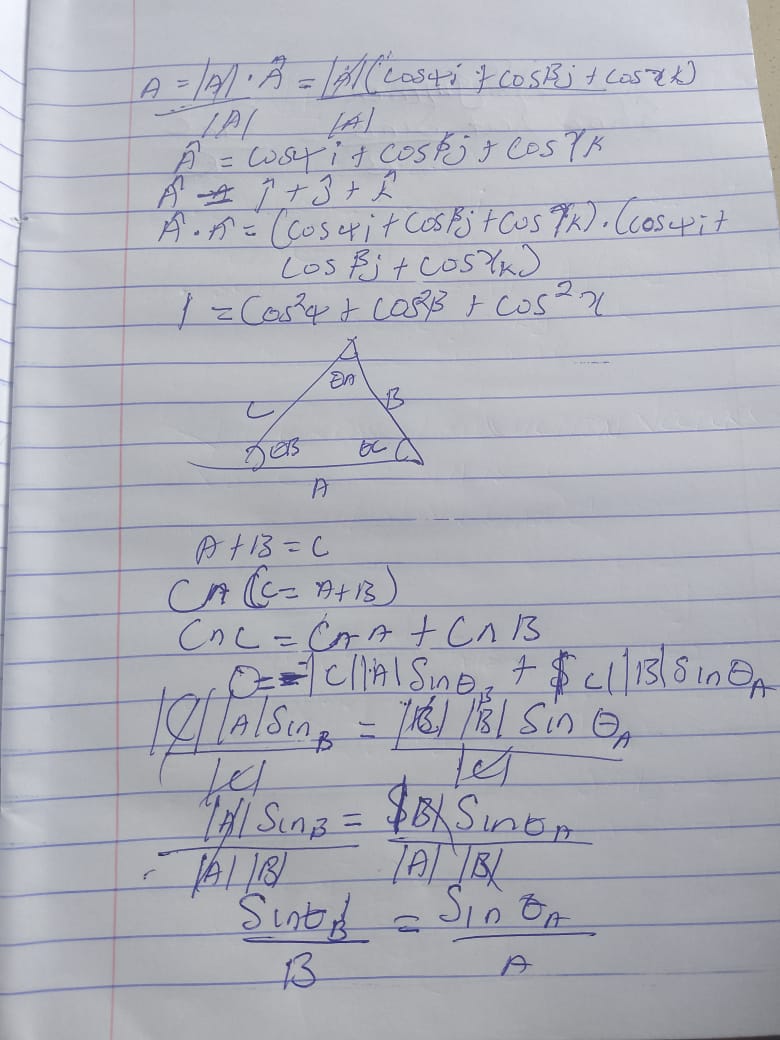 A = |A| · Â = |A|(cosαi + cosβj + cosγk)
|A| |A|
Â = cosαi + cosβj + cosγk
Â = î + ĵ + k̂
Â · Â = (cosαi + cosβj + cosγk) · (cosαi +
cosβj + cosγk)
1 = cos²α + cos²β + cos²γ
θA
C B
θB θC
A
A + B = C
C∧(C = A + B)
C∧C = C∧A + C∧B
0 = -|C||A| Sinθ_B + |C||B| Sinθ_A
|C||A| Sin_B = |C||B| Sin θ_A
|C| |C|
|A| Sin_B = |B| Sinθ_A
|A||B| |A||B|
Sinθ_B = Sin θ_A
B A